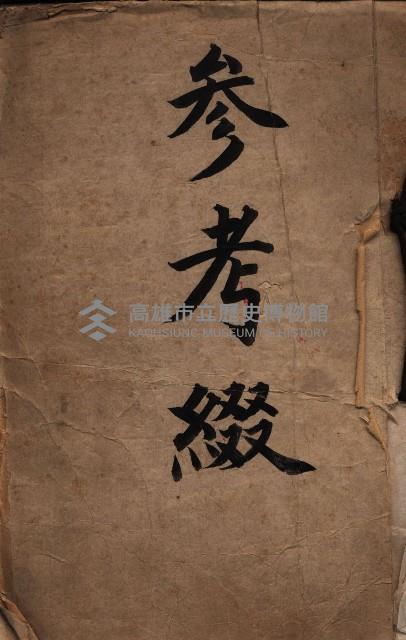 参考綴
高雄市立歷史博物館
KAOHSIUNG MUSEUM OF HISTORY